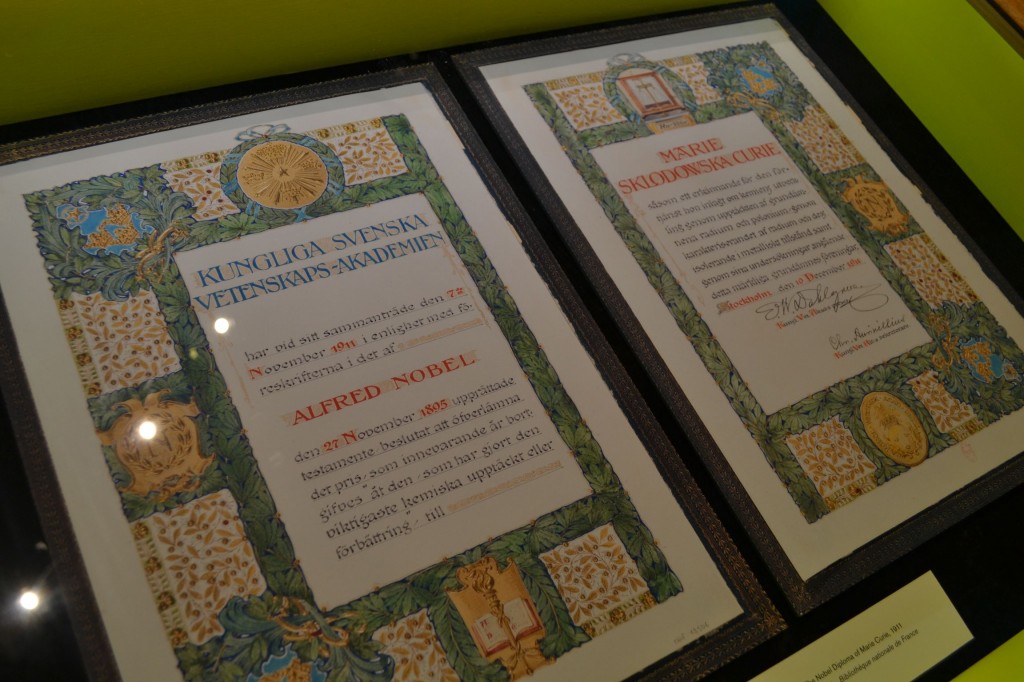 KUNGLIGA SVENSKA
VETENSKAPS-AKADEMIEN
har vid sitt sammanträde den 7de
November 1911 i enlighet med fö-
reskrifterna i det af
ALFRED NOBEL
den 27 November 1895 upprättade
testamente beslutat att öfverlämna
det pris, som innevarande år bort-
gifves "åt den, som har gjort den
viktigaste kemiska upptäckt eller
förbättring", till
MARIE
SKLODOWSKA CURIE
såsom ett erkännande för den för-
tjänst hon inlagt om kemiens utveck-
ling genom upptäckten af grundäm-
nena radium och polonium, genom
karakteriserandet af radium och dess
isolerande i metalliskt tillstånd samt
genom sina undersökningar angående
detta märkliga grundämnes föreningar.
Stockholm den 10 December 1911
Nobel Diploma of Marie Curie, 1911
Bibliothèque nationale de France